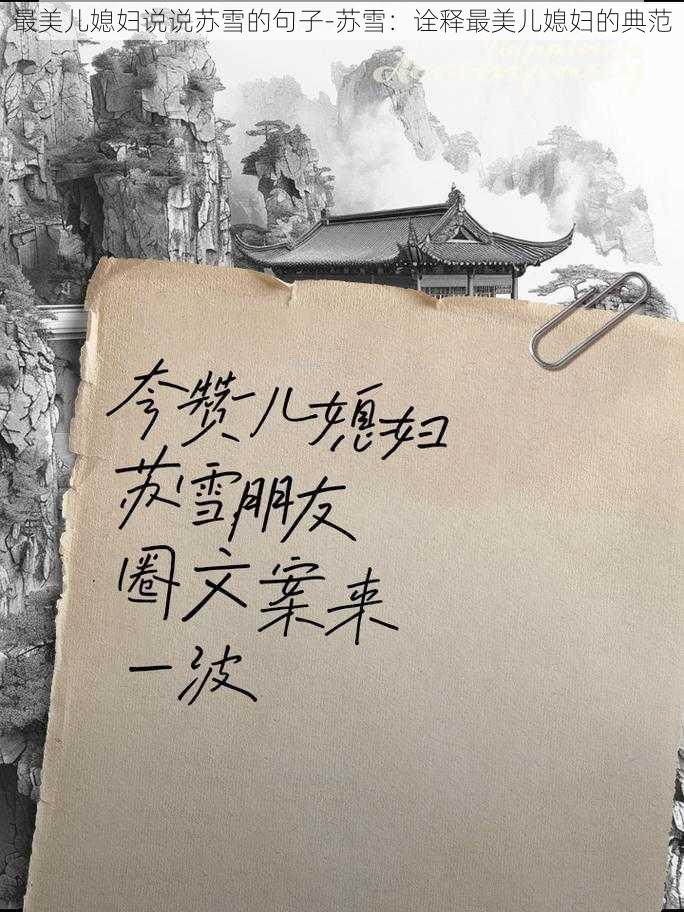 最美儿媳妇说说苏雪的句子-苏雪：诠释最美儿媳妇的典范
夸赞儿媳妇
苏雪朋友
圈文案来
一波